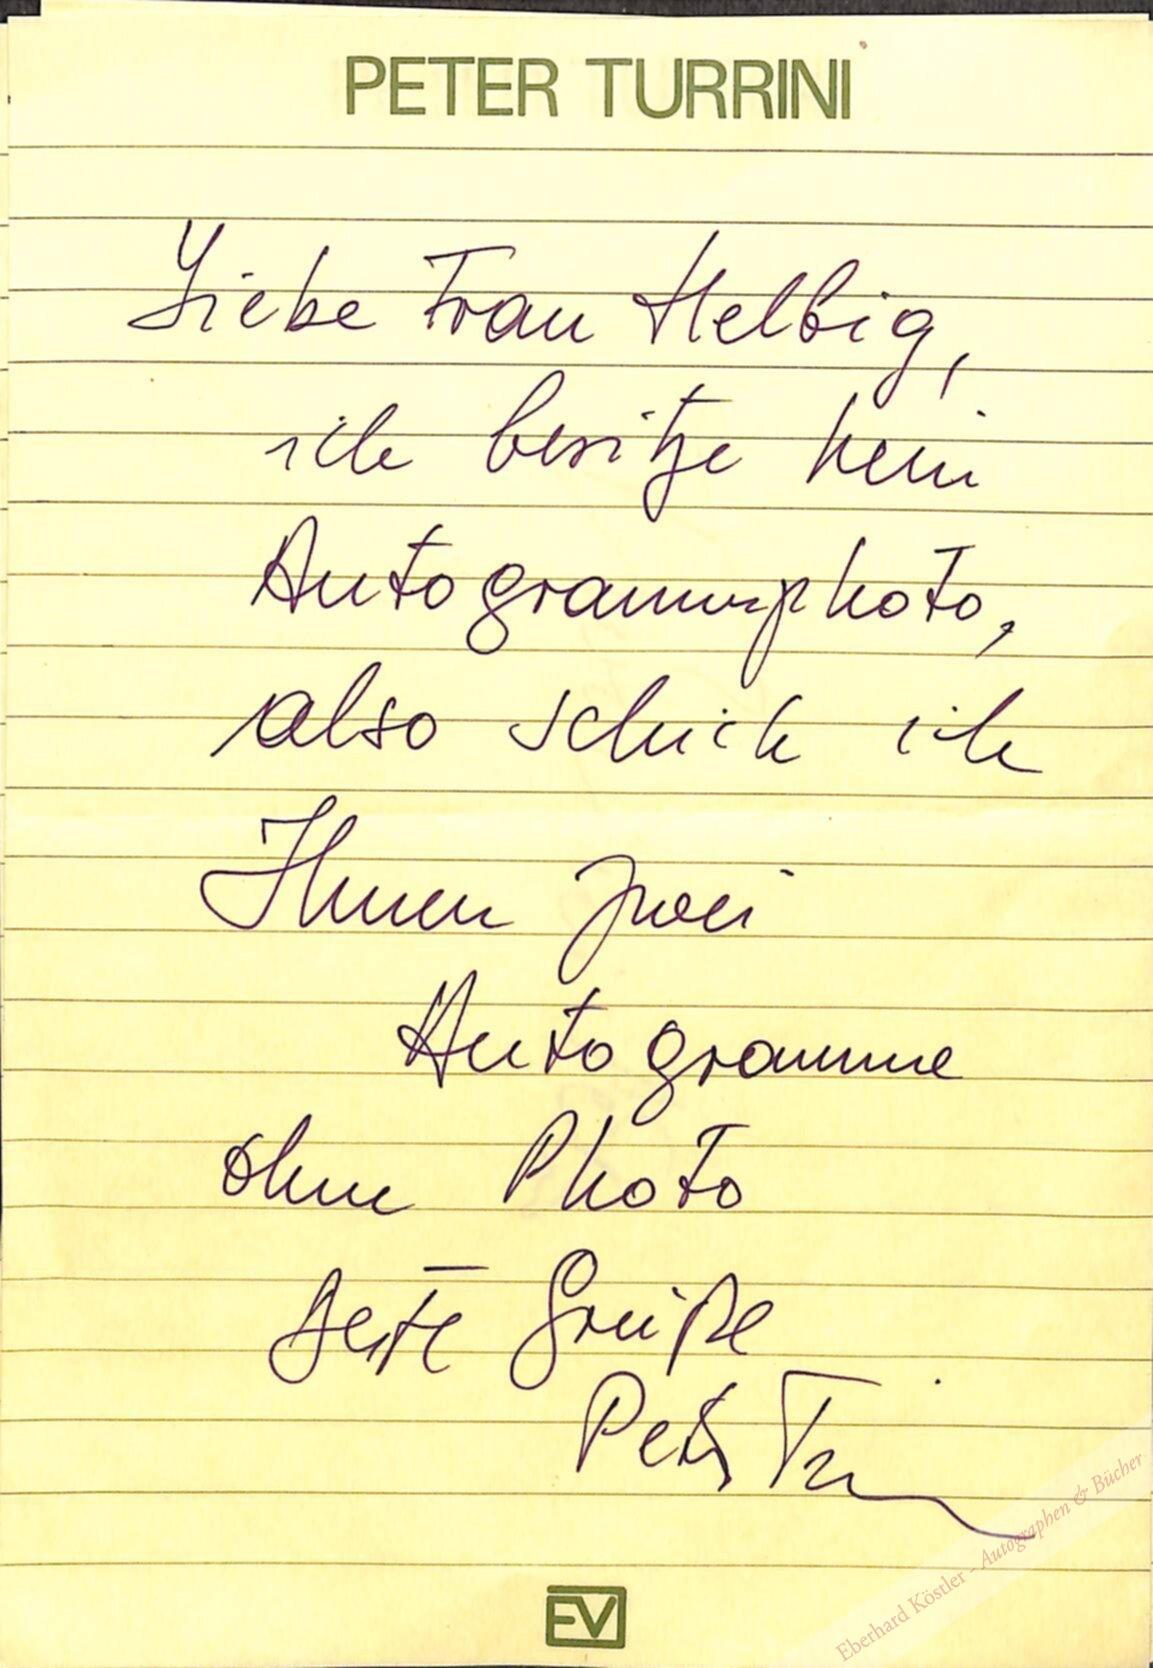 PETER TURRINI
Liebe Frau Helbig,
ich besitze kein
Autogrammphoto,
also schick ich
Ihnen zwei
Autogramme
ohne Photo
Beste Grüße
Peter Turrini
EV
Eberhard Köstler - Autographen & Bücher